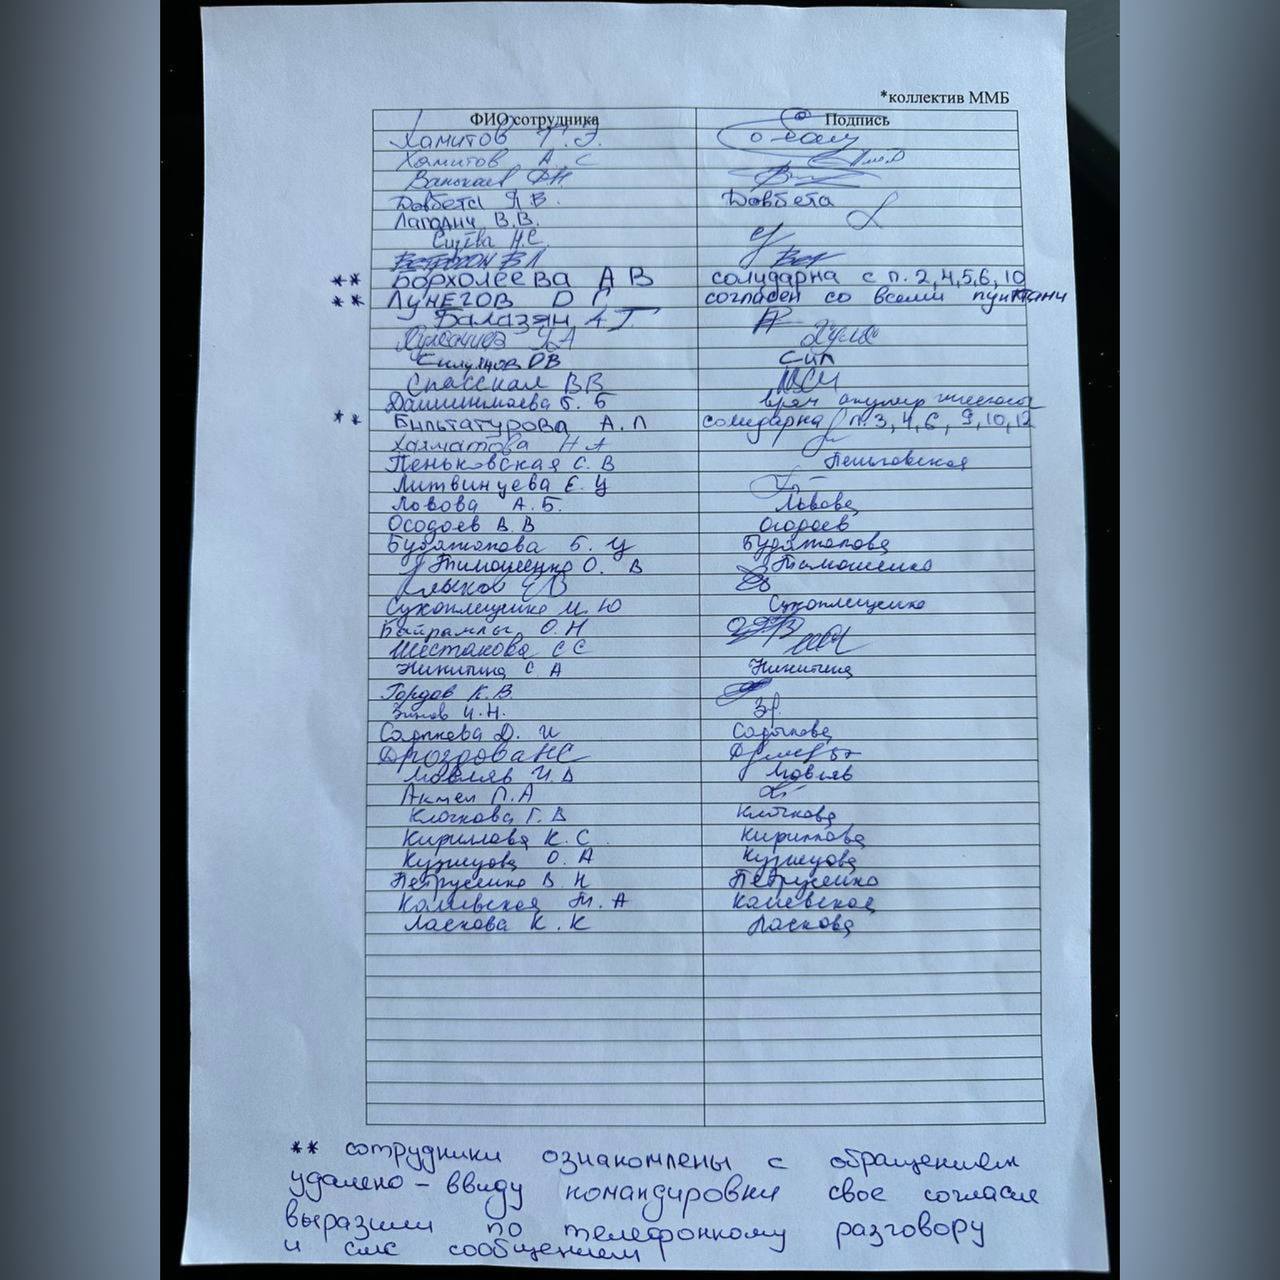 *коллектив ММБ
ФИО сотрудника Подпись
Хамитов
Хамитов А. С
Довбета Я В. Довбета
Лагодич В.В.
Сиева Н.С.
** Борхолеева А В солидарна с п. 2,4,5,6,10
** Лунегов D Г согласен со всеми пунктами
Балазян А Г
Силунов DВ Сил
Спасская В В
Дашинимаева Б. Б врач
** Бильтатурова А. П солидарна п. 3,4,6, 9,10,12
Хахматова Н А
Пеньковская С. В Пеньковская
Литвинцева Е. Ц
Львова А. Б. Львова
Осодоев В. В Осодоев
Будажапова Б. Ц Будажапова
Тимошенко О. В Тимошенко
Клыков
Сухоплещенко И. Ю Сухоплещенко
Байрамлы О. Н
Шестакова С С
Никитина С А Никитина
Гордов К. В
Зинов И. Н.
Садыкова D. И Садыкова
Дроздова НС
Мовляв И. D Мовляв
Акмен П. А
Клочкова Г. В Клочкова
Кириллова К. С. Кириллова
Кузнецова О. А Кузнецова
Петрусенко В. Н Петрусенко
Калиевская Т. А
Ласкова К. К Ласкова
** сотрудники ознакомлены с обращением
удалено – ввиду командировки свое согласие
выразили по телефонному разговору
и смс сообщением